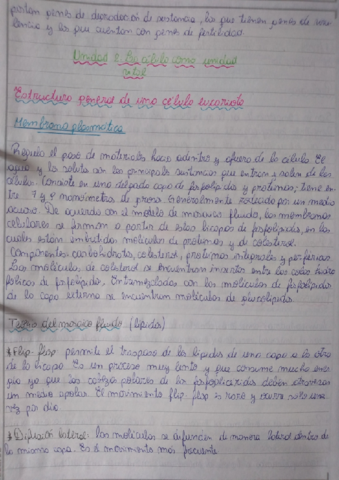 portan genes de degradación de sustancias, los que tienen genes de
lencia y los que cuentan con genes de fertilidad
Unidad 2: La célula como unidad
vital
Estructura general de una célula eucariota
Membrana plasmática
Regula el paso de materiales hacia adentro y afuera de la célula. El
agua y los solutos son las principales sustancias que entran y salen de las
células. Consiste en una delgada capa de fosfolípidos y proteínas, tiene en
tre 7 y 9 nanómetros de grosor. Generalmente rodeado por un medio
acuoso. De acuerdo con el modelo de mosaico fluido, las membranas
celulares se forman a partir de estas bicapas de fosfolípidos, en las
cuales están embebidas moléculas de proteínas y de colesterol.
Componentes: carbohidratos, colesterol, proteínas integrales y periféricas.
Las moléculas de colesterol se encuentran insertas entre las colas hidro
fóbicas de fosfolípidos. Entremezcladas con las moléculas de fosfolípidos
de la capa externa se encuentran moléculas de glucolípidos.
Teoría del mosaico fluido (lípidos)
Flip-flop: permite el traspaso de los lípidos de una capa a la otra
de la bicapa. Es un proceso muy lento y que consume mucha ener
gía ya que las cabezas polares de los fosfolípidos deben atravesar
un medio apolar. El movimiento flip-flop es raro y ocurre solo una
vez por día
Difusión lateral: las moléculas se difunden de manera lateral dentro de
la misma capa. Es el movimiento más frecuente.